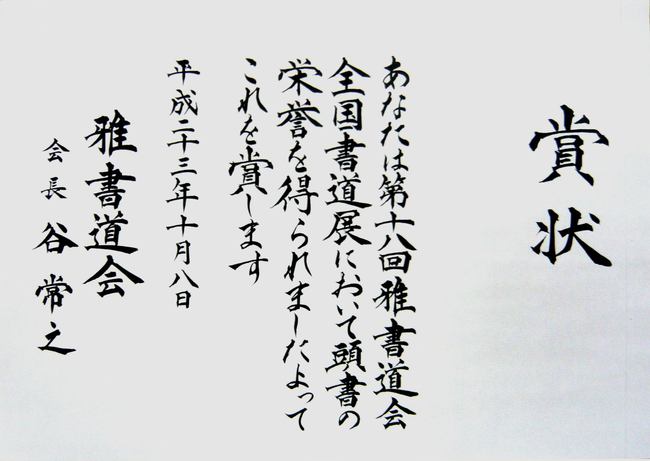 賞状
あなたは第十八回雅書道会
全国書道展において頭書の
栄誉を得られましたよって
これを賞します
平成二十三年十月八日
雅書道会
会長 谷常之